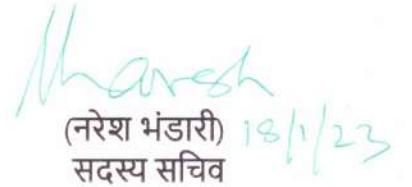 Naresh
(नरेश भंडारी) 18/1/23
सदस्य सचिव